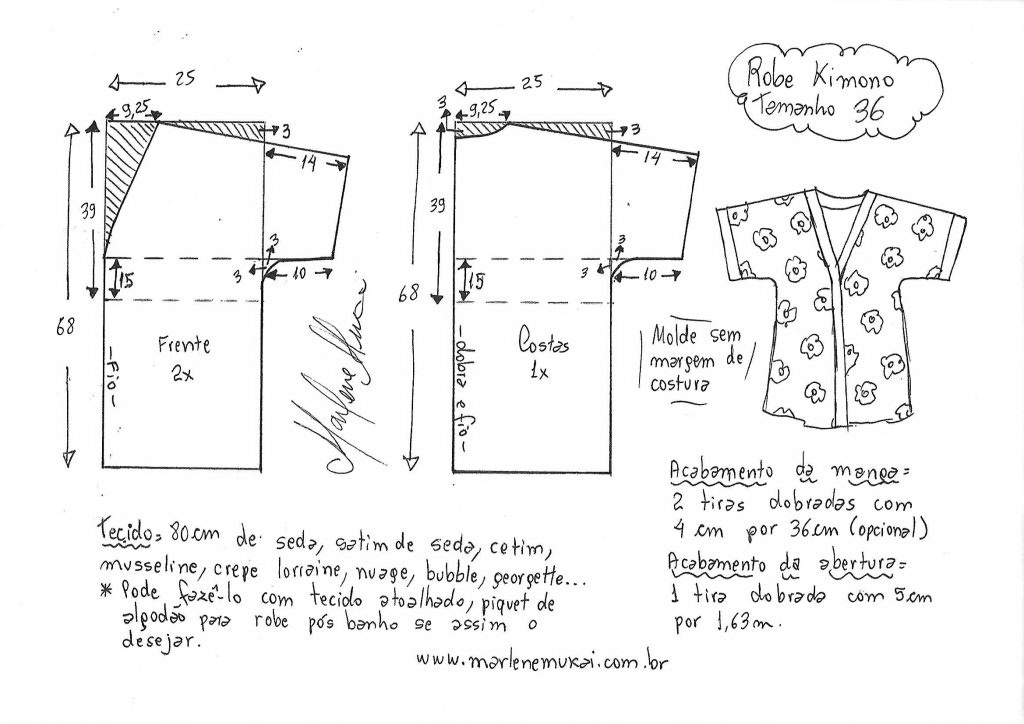 Robe Kimono
Tamanho 36
25
9,25
3
14
39
68
3
3
10
15
Frente
2x
-Fio-
Marlene Mukai
25
3
9,25
3
14
39
68
3
3
10
15
Costas
1x
-dobra e fio-
Molde sem
margem de
costura
Acabamento da manga=
2 tiras dobradas com
4 cm por 36cm (opcional)
Acabamento da abertura=
1 tira dobrada com 5cm
por 1,63m.
Tecido= 80cm de seda, satim de seda, cetim,
musseline, crepe lorraine, nuage, bubble, georgette...
* Pode fazê-lo com tecido atoalhado, piquet de
algodão para robe pós banho se assim o
desejar.
www.marlenemukai.com.br